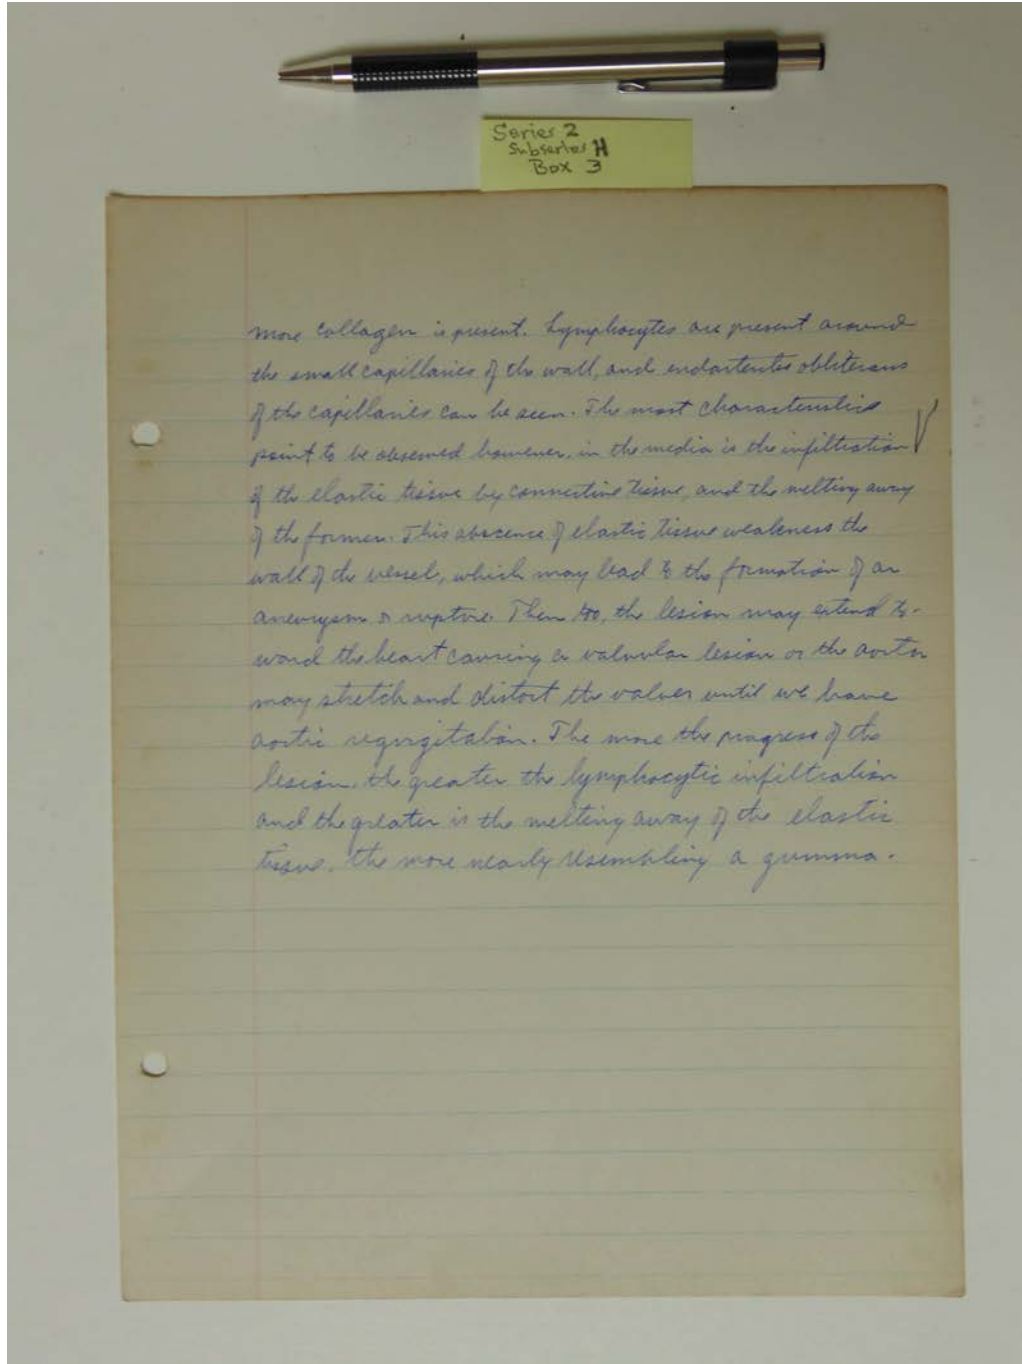 Series 2
Subseries H
Box 3
more collagen is present. Lymphocytes are present around
the small capillaries of the wall, and endarteritis obliterans
of the capillaries can be seen. The most characteristic
point to be observed however, in the media is the infiltration
of the elastic tissue by connective tissue, and the melting away
of the former. This abscence of elastic tissue weakeness the
wall of the vessel, which may lead to the formation of an
aneurysm or rupture. Then too, the lesion may extend to-
ward the heart causing a valvular lesion or the aorta
may stretch and distort the valves until we have
aortic regurgitation. The more the progress of the
lesion, the greater the lymphocytic infiltration
and the greater is the melting away of the elastic
tissue, the more nearly resembling a gumma.